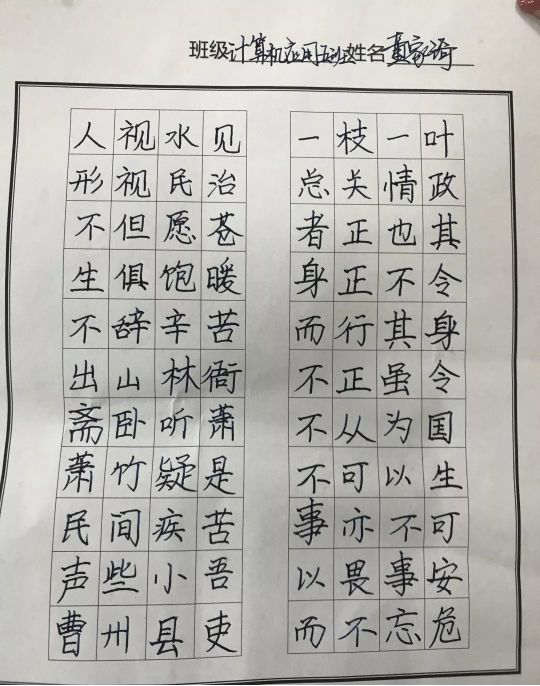 班级计算机应用五班姓名黄家琦
人视水见
形视民治
不但愿苍
生俱饱暖
不辞辛苦
出山林衙
斋卧听萧
萧竹疑是
民间疾苦
声些小吾
曹州县吏
一枝一叶
总关情政
者正也其
身正不令
而行其身
不正虽令
不从为国
不可以生
事亦不可
以畏事安
而不忘危